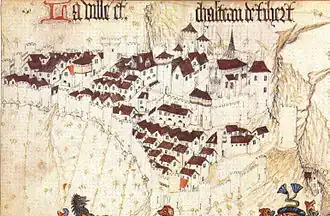 La ville et chasteau de tihert